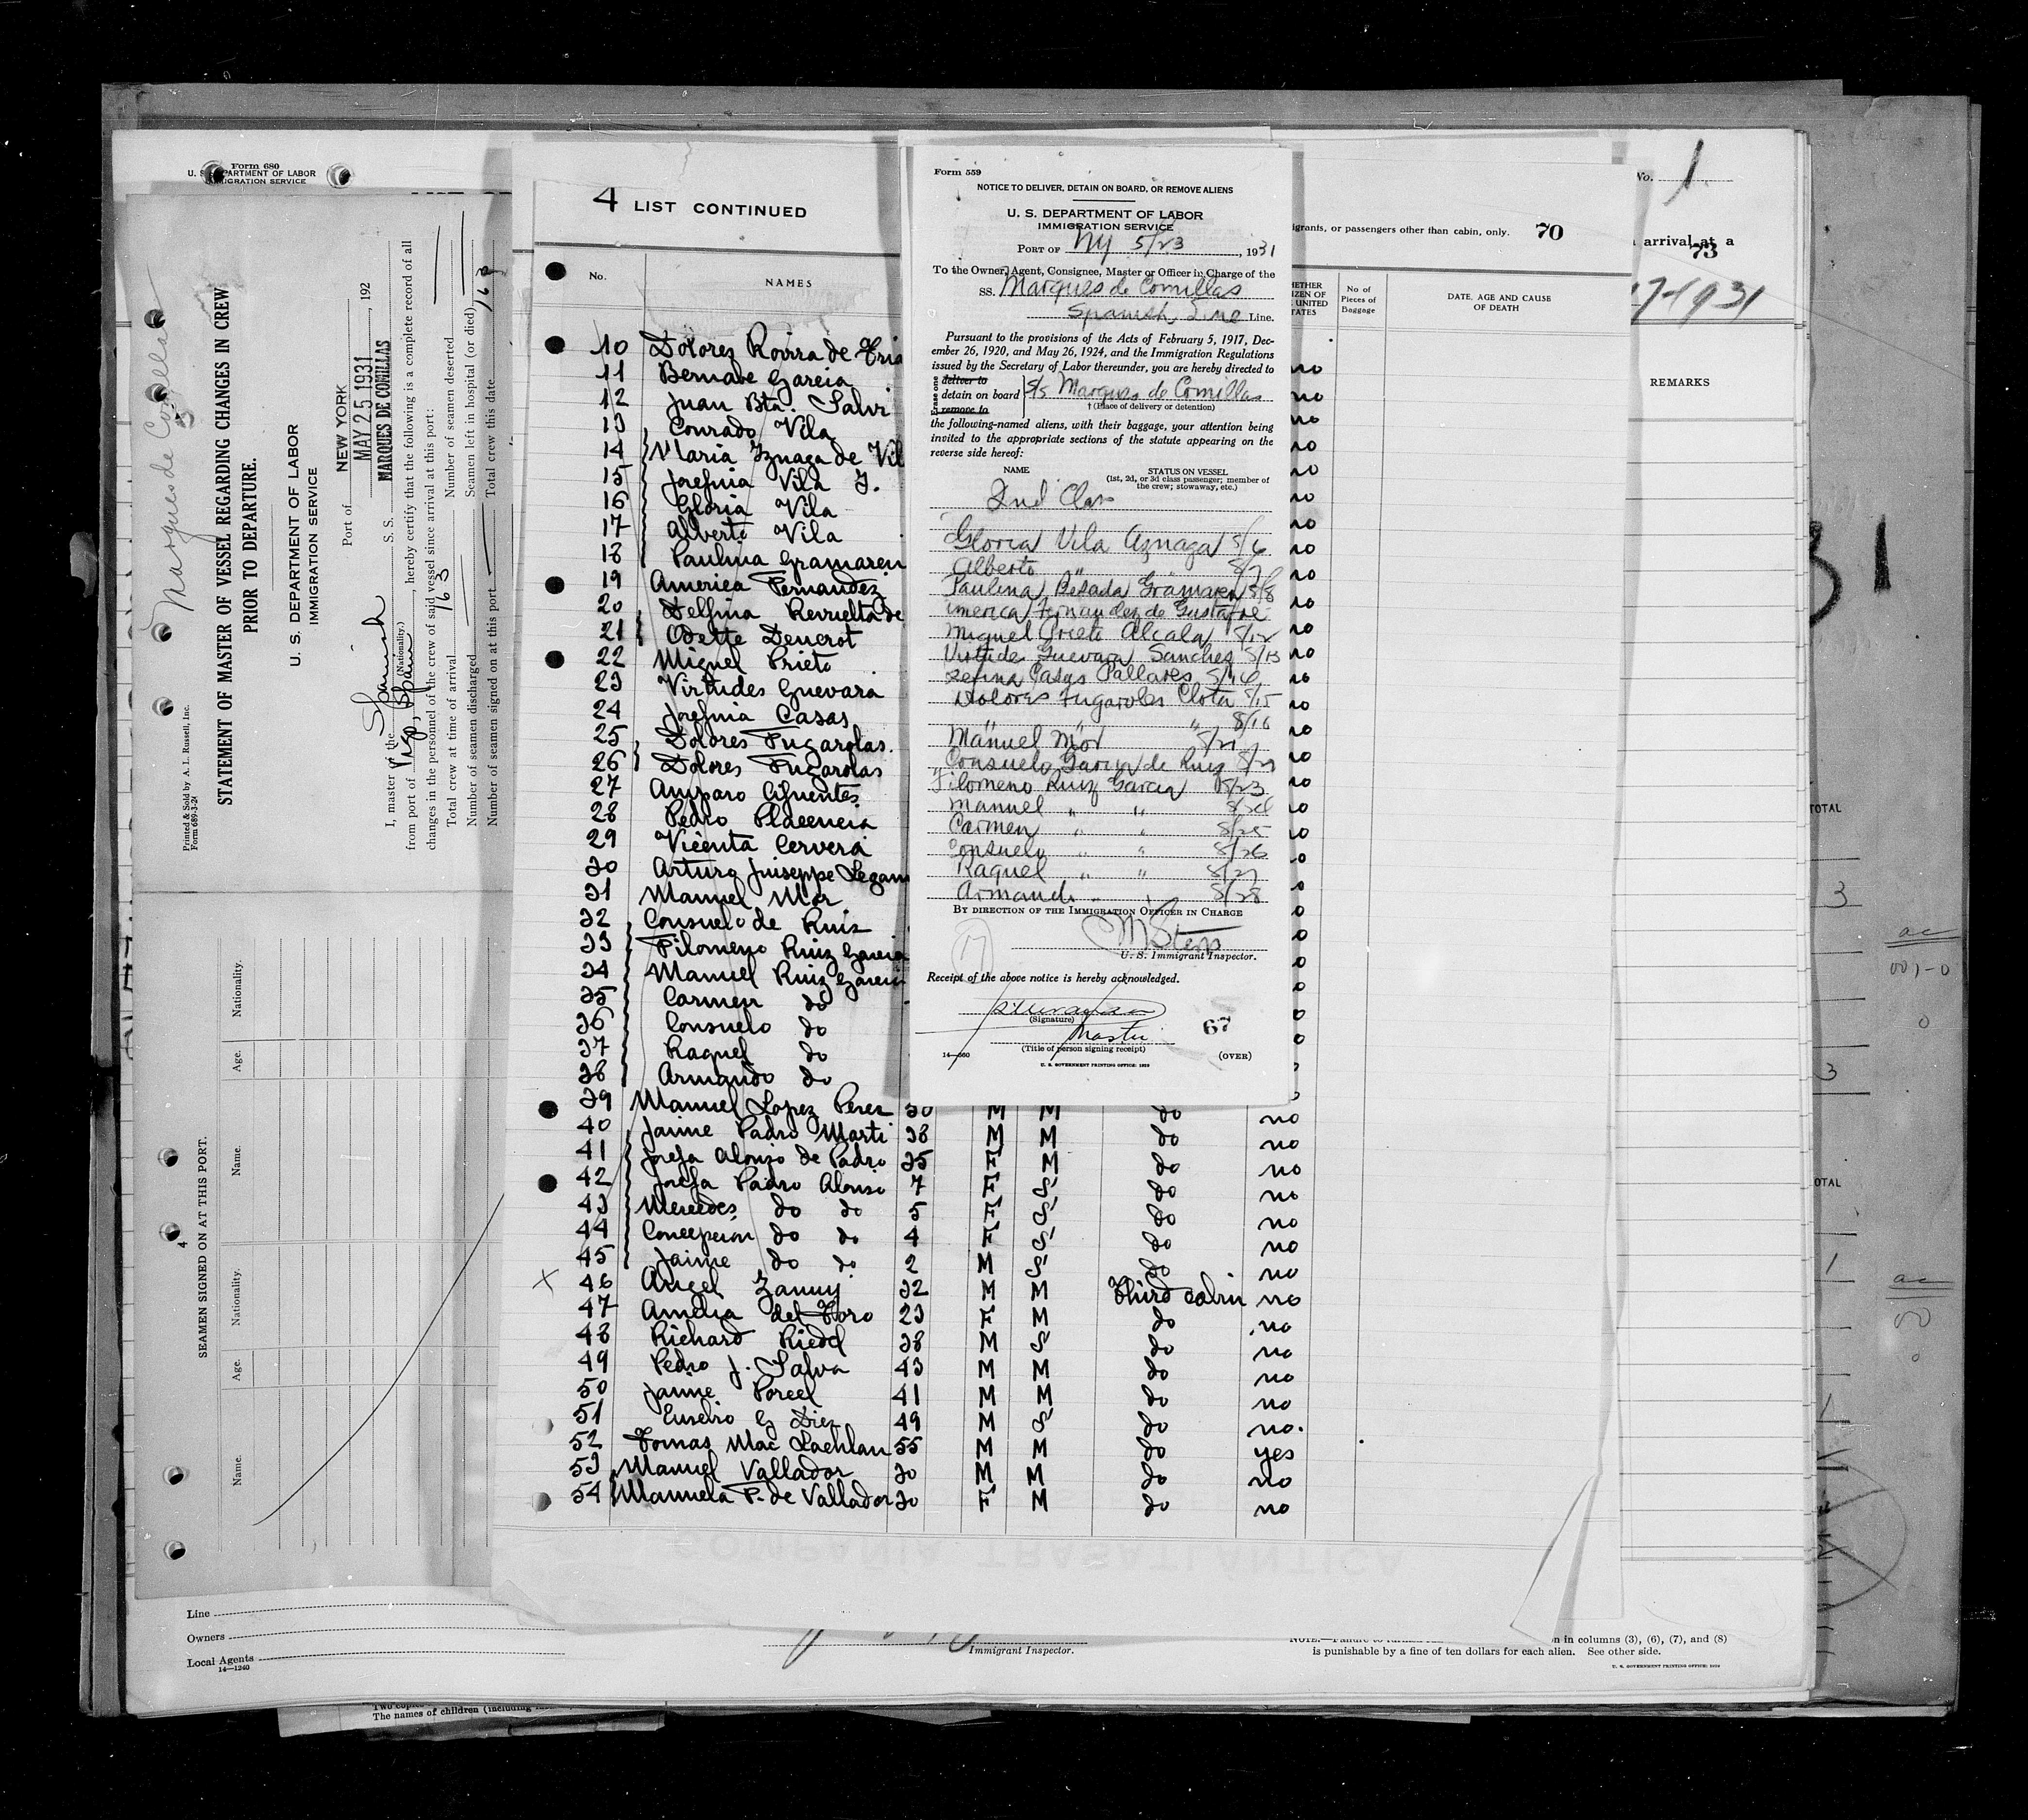 Form 680
U. S. DEPARTMENT OF LABOR
IMMIGRATION SERVICE
Marques de Comillas
Printed & Sold by A. L. Russell, Inc.
Form 689-3-26
STATEMENT OF MASTER OF VESSEL REGARDING CHANGES IN CREW
PRIOR TO DEPARTURE.
U. S. DEPARTMENT OF LABOR
IMMIGRATION SERVICE
Port of NEW YORK
MAY 25 1931, 192
I, master of the Spanish S. S. MARQUES DE COMILLAS
(Nationality.)
from port of Vigo, Spain, hereby certify that the following is a complete record of all
changes in the personnel of the crew of said vessel since arrival at this port:
Total crew at time of arrival 163 Number of seamen deserted
Number of seamen discharged Seamen left in hospital (or died)
Number of seamen signed on at this port Total crew this date 163
SEAMEN SIGNED ON AT THIS PORT.
4
Name. Age. Nationality. Name. Age. Nationality.
Line
Owners
Local Agents
14—1240
4 LIST CONTINUED
No. NAMES
10 Dolores Rovira de
11 Bernabe Garcia
12 Juan Bta. Salv
13 Conrado Vila
14 Maria Iznaga de Vil
15 Josefina Vila I.
16 Gloria Vila
17 Alberto Vila
18 Paulina Gramaren
19 America Fernandez
20 Delfina Revuelta de
21 Odette Denerot
22 Miguel Prieto
23 Virtudes Guevara
24 Josefina Casas
25 Dolores Fugarolas.
26 Dolores Fugarolas
27 Amparo Cifuentes
28 Pedro Placencia
29 Vicenta Cervera
30 Arturo Juiseppe Legan
31 Manuel Mor
32 Consuelo de Ruiz
33 Filomeno Ruiz Garcia
34 Manuel Ruiz Garcia
35 Carmen do
36 Consuelo do
37 Raquel do
38 Armando do
39 Manuel Lopez Perez 30 M M do no
40 Jaime Padro Marti 38 M M do no
41 Josefa Alonso de Padro 35 F M do no
42 Josefa Padro Alonso 7 F S do no
43 Mercedes do do 5 F S do no
44 Concepcion do do 4 F S do no
45 Jaime do do 2 M S do no
46 Angel Zannuy 32 M M Third cabin no
47 Amelia del Toro 23 F M do no
48 Richard Riedel 38 M S do no
49 Pedro J. Salva 43 M M do no
50 Jaime Porcel 41 M M do no
51 Eusebio G Diez 49 M S do no.
52 Tomas Mac Lachlan 55 M M do yes
53 Manuel Vallador 30 M M do no
54 Manuela P. de Vallador 30 F M do no
COMPAÑIA TRASATLANTICA
Form 559
NOTICE TO DELIVER, DETAIN ON BOARD, OR REMOVE ALIENS
U. S. DEPARTMENT OF LABOR
IMMIGRATION SERVICE
PORT OF NY 5/23, 1931
To the Owner, Agent, Consignee, Master or Officer in Charge of the
SS. Marques de Comillas
Spanish Line Line.
Pursuant to the provisions of the Acts of February 5, 1917, Dec-
ember 26, 1920, and May 26, 1924, and the Immigration Regulations
issued by the Secretary of Labor thereunder, you are hereby directed to
Erase one
deliver to
detain on board S/S Marques de Comillas
remove to
† (Place of delivery or detention)
the following-named aliens, with their baggage, your attention being
invited to the appropriate sections of the statute appearing on the
reverse side hereof:
NAME STATUS ON VESSEL
(1st, 2d, or 3d class passenger; member of
the crew; stowaway, etc.)
2nd Class
Gloria Vila Aznaga 5/6
Alberto " 5/7
Paulina Besada Gramaren 5/8
america Fernandez de Gustafre
Miguel Prieto Alcala 5/12
Virtudes Guevara Sanchez 5/13
Casas Pallares 5/14
Dolores Fugaroles Clota 5/15
" " 5/16
Manuel Mor 5/21
Consuelo Garcia de Ruiz 5/22
Filomeno Ruiz Garcia 5/23
Manuel " " 5/24
Carmen " " 5/25
Consuelo " " 5/26
Raquel " " 5/27
Armando " 5/28
BY DIRECTION OF THE IMMIGRATION OFFICER IN CHARGE
17
U. S. Immigrant Inspector.
Receipt of the above notice is hereby acknowledged.
(Signature)
Master
67
(Title of person signing receipt)
14—560
(OVER)
U. S. GOVERNMENT PRINTING OFFICE: 1929
igrants, or passengers other than cabin, only. 70
No of
Pieces of
Baggage
DATE, AGE AND CAUSE
OF DEATH
No. 1
arrival at a
73
1931
REMARKS
31
TOTAL
3
3
OTAL
1
1
Immigrant Inspector.
n in columns (3), (6), (7), and (8)
is punishable by a fine of ten dollars for each alien. See other side.
U. S. GOVERNMENT PRINTING OFFICE: 1929
Two copies
The names of children (including